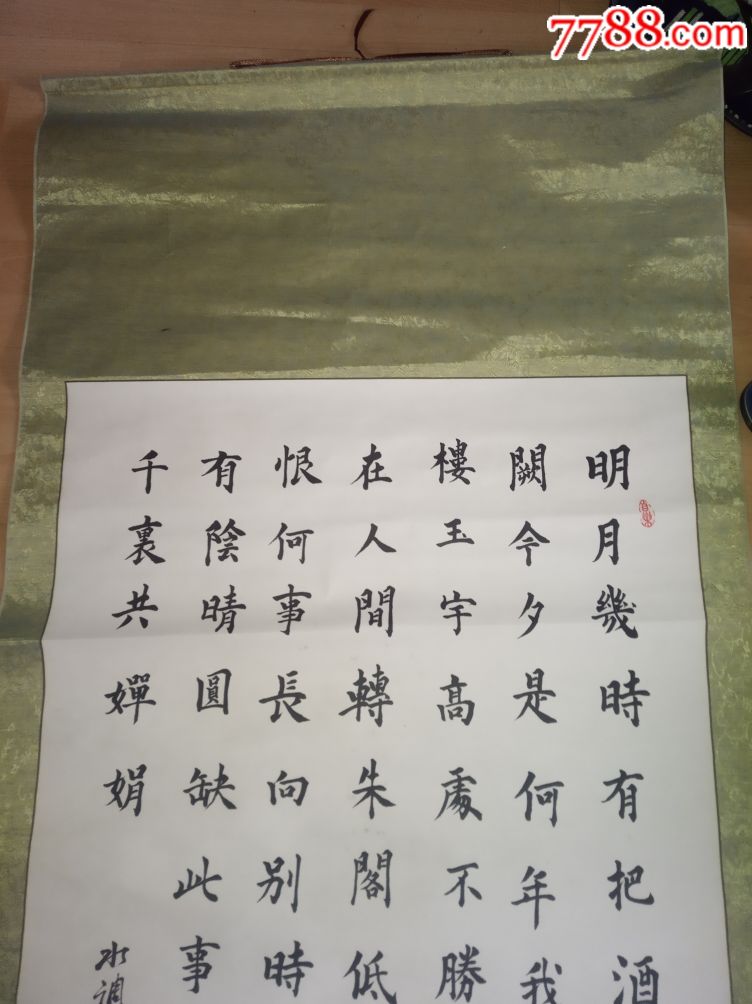 7788.com
明月幾時有把酒
闕今夕是何年我
樓玉宇高處不勝
在人間轉朱閣低
恨何事長向別時
有陰晴圓缺此事
千裏共嬋娟
水調